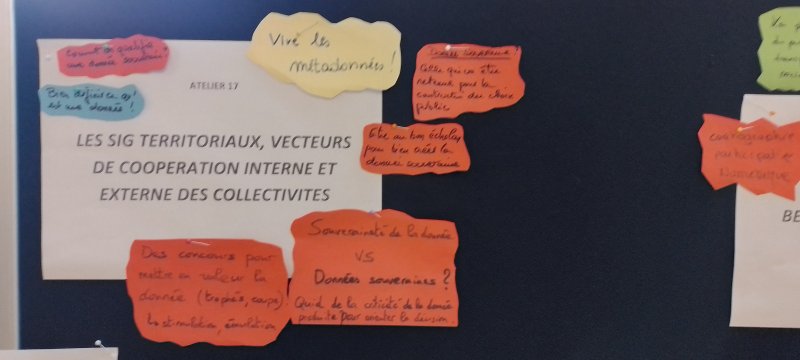 Comment on qualifie
une donnée souveraine ?
Bien définir ce qu'
est une donnée !
Vive les
métadonnées !
ATELIER 17
LES SIG TERRITORIAUX, VECTEURS
DE COOPERATION INTERNE ET
EXTERNE DES COLLECTIVITES
Donnée souveraine ?
Celle qui va être
retenue pour la
construction des choix
publics
Etre au bon échelon
pour bien créer la
donnée souveraine
Des concours pour
mettre en valeur la
donnée (trophés, coupe) !
stimulation, émulation
Souveraineté de la donnée
VS
Données souveraines ?
Quid de la de la donnée
produite pour orienter la décision.
cartographie
participative
NUMERIQUE
BE